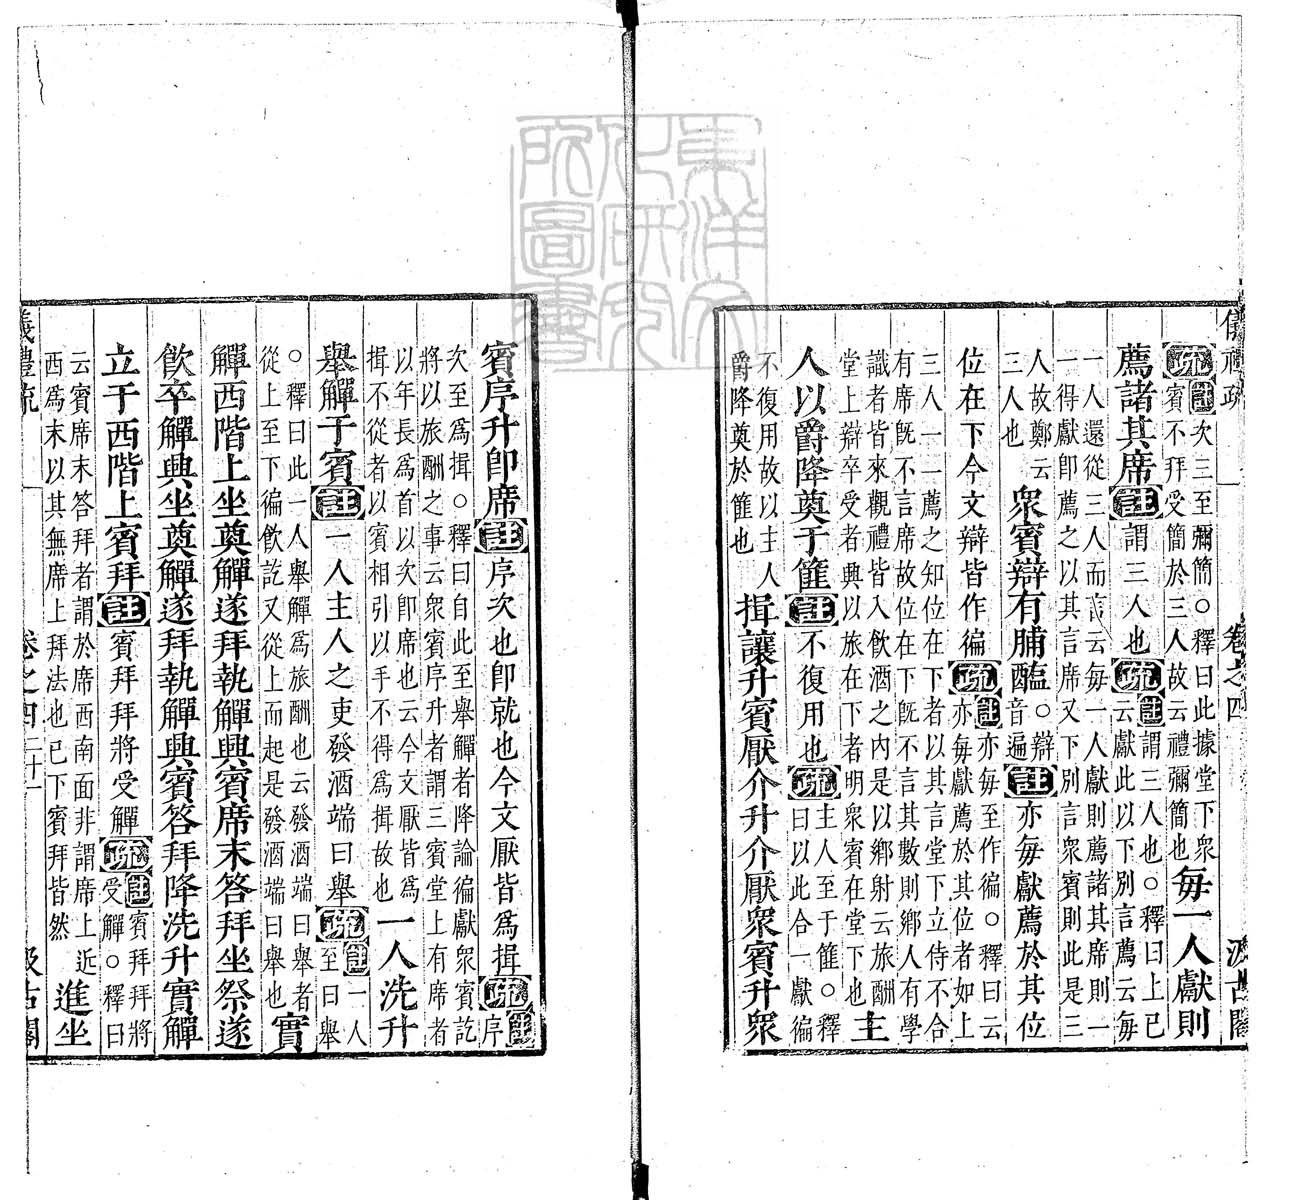 儀禮疏 卷之四 汲古閣
疏註次三至彌簡○釋曰此據堂下衆
賓不拜受簡於三人故云禮彌簡也每一人獻則
薦諸其席註謂三人也疏註謂三人也○釋曰上已
云獻此以下別言薦云每
一人還從三人而言云每一人獻則薦諸其席則一
一得獻卽薦之以其言席又下別言衆賓則此是三
人故鄭云
三人也 衆賓辯有脯醢○辯
音遍註亦每獻薦於其位
位在下今文辯皆作徧疏註亦每至作徧○釋曰云
亦每獻薦於其位者如上
三人一一薦之知位在下者以其言堂下立侍不合
有席旣不言席故位在下旣不言其數則鄉人有學
識者皆來觀禮皆入飲酒之內是以鄉射云旅酬
堂上辯卒受者興以旅在下者明衆賓在堂下也主
人以爵降奠于篚註不復用也疏註主人至于篚○釋
曰以此合一獻徧
不復用故以主人
爵降奠於篚也 揖讓升賓厭介升介厭衆賓升衆
賓序升卽席註序次也卽就也今文厭皆爲揖疏註
序
次至爲揖○釋曰自此至舉觶者降論徧獻衆賓訖
將以旅酬之事云衆賓序升者謂三賓堂上有席者
以年長爲首以次卽席也云今文厭皆爲
揖不從者以賓相引以手不得爲揖故也一人洗升
舉觶于賓註一人主人之吏發酒端曰舉疏註一人
至曰舉
○釋曰此一人舉觶爲旅酬也云發酒端曰舉者
從上至下徧飲訖又從上而起是發酒端曰舉也實
觶西階上坐奠觶遂拜執觶興賓席末答拜坐祭遂
飲卒觶興坐奠觶遂拜執觶興賓答拜降洗升實觶
立于西階上賓拜註賓拜拜將受觶疏註賓拜拜將
受觶○釋曰
云賓席末答拜者謂於席西南面非謂席上近
西爲末以其無席上拜法也已下賓拜皆然 進坐
儀禮疏 卷之四 二十一 汲古閣
東洋文
化研究
所圖書